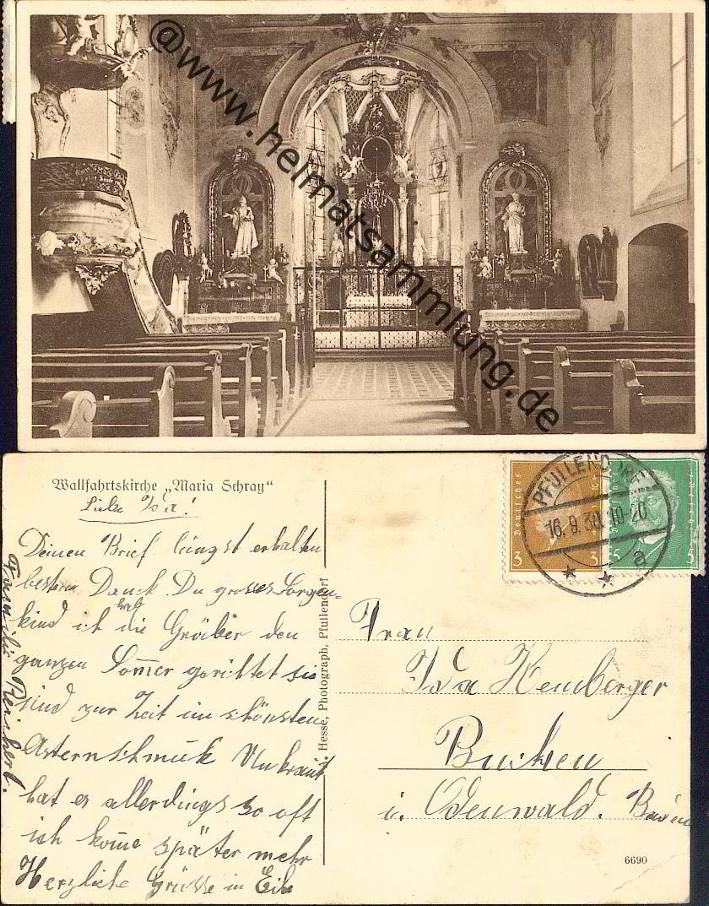 @www.heimatsammlung.de
Wallfahrtskirche „Maria Schray"
Liebe Ida!
Deinen Brief längst erhalten
besten Dank. Du grosses Sorgen-
kind ich hab die Gräber den
ganzen Sommer gerichtet sie
sind zur Zeit im schönsten
Asternschmuk Unkraut
hat es allerdings so oft
ich kome später mehr
Herzliche Grüsse in Eile
Familie Reichert.
Hesse, Photograph, Pfullendorf
PFULLENDORF
16. 9. 30. 10-20
* * a
3 3
5
Frau
Ida Hemberger
Buchen
i. Odenwald. Baden
6690